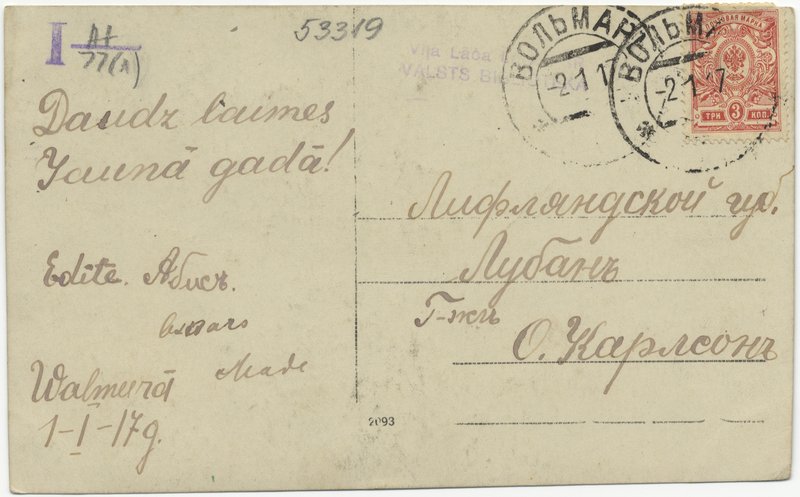 I A4
77(A)
53319
Vija Lāča
VALSTS
ВОЛЬМАР
-2.1.1
ВОЛЬМА
-2.1.17
ПОЧТОВАЯ МАРКА
ТРИ 3 КОП.
Daudz laimes
Jaunā gadā!
Edite. Абусъ.
Walmeerā
1-I-17g.
Лифляндской губ.
Лубанъ
Г-жѣ
О. Карлсонъ
2093